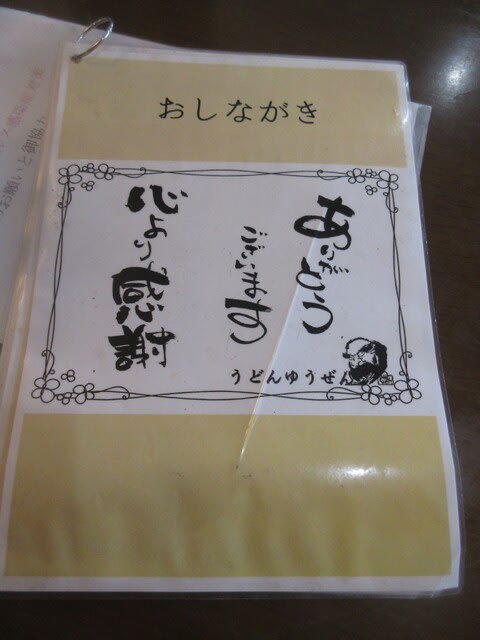 おしながき
ありがとう
ございます
心より感謝
うどんゆうぜん